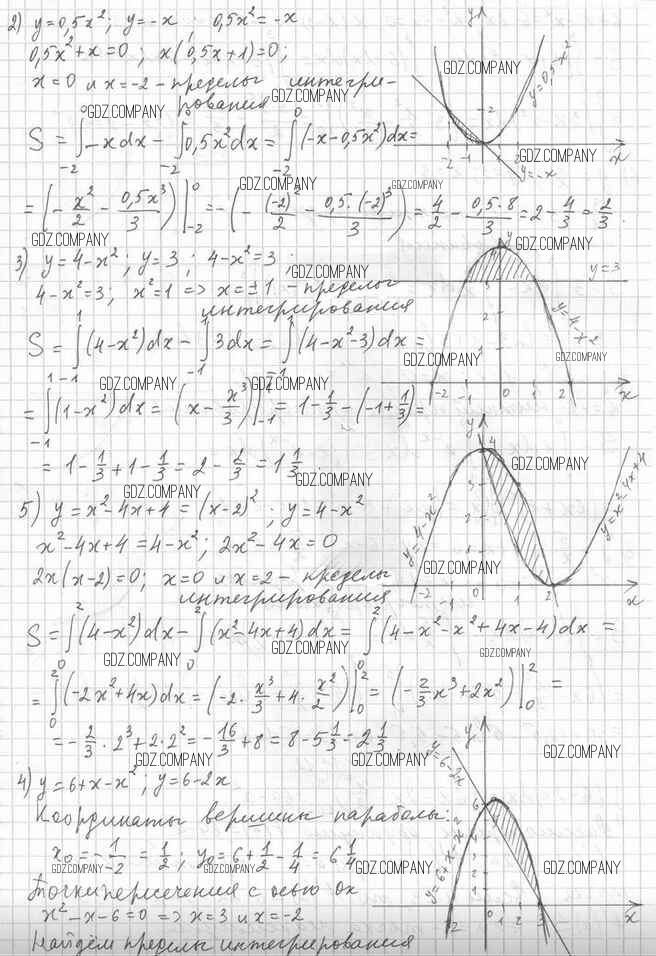 2) y=0,5x²; y=-x ; 0,5x²=-x
0,5x²+x=0 ; x(0,5x+1)=0;
x=0 и x=-2 - пределы интегри-
рования
S = ∫₋₂⁰ -xdx - ∫₋₂⁰ 0,5x²dx = ∫₋₂⁰ (-x-0,5x²)dx=
= (-x²/2 - 0,5x³/3)|₋₂⁰ = -(-(-2)²/2 - 0,5·(-2)³/3) = 4/2 - 0,5·8/3 = 2 - 4/3 = 2/3.
y=0,5x²
y=-x
3) y=4-x²; y=3; 4-x²=3;
4-x²=3; x²=1 => x=±1 - пределы
интегрирования
S = ∫₋₁¹ (4-x²)dx - ∫₋₁¹ 3dx = ∫₋₁¹ (4-x²-3)dx =
= ∫₋₁¹ (1-x²)dx = (x - x³/3)|₋₁¹ = 1 - 1/3 - (-1 + 1/3) =
= 1 - 1/3 + 1 - 1/3 = 2 - 2/3 = 1 1/3.
y=3
y=4-x2
5) y=x²-4x+4=(x-2)²; y=4-x²
x²-4x+4=4-x²; 2x²-4x=0
2x(x-2)=0; x=0 и x=2 - пределы
интегрирования
S = ∫₀² (4-x²)dx - ∫₀² (x²-4x+4)dx = ∫₀² (4-x²-x²+4x-4)dx =
= ∫₀² (-2x²+4x)dx = (-2·x³/3 + 4·x²/2)|₀² = (-2/3x³+2x²)|₀² =
= -2/3·2³+2·2² = -16/3 + 8 = 8 - 5 1/3 = 2 1/3
y=4-x²
y=x²-4x+4
4) y=6+x-x²; y=6-2x
Координаты вершины параболы:
x₀ = -1/-2 = 1/2; y₀ = 6 + 1/2 - 1/4 = 6 1/4
Точки пересечения с осью Ox
x²-x-6=0 => x=3 и x=-2
Найдём пределы интегрирования
y=6-2x
y=6+x-x²
GDZ.COMPANY